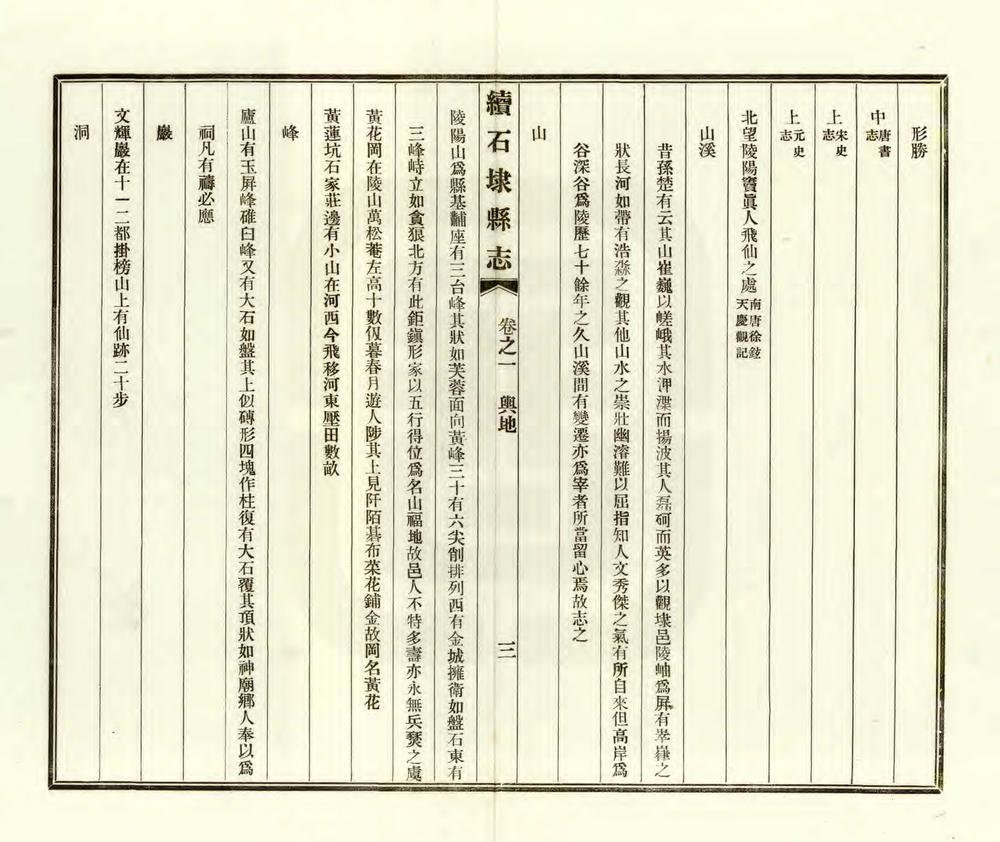 形勝
中唐書志
上宋史志
上元史志
北望陵陽竇眞人飛仙之處南唐徐鉉天慶觀記
山溪
昔孫楚有云其山崔巍以嵯峨其水浹渫而揚波其人磊砢而英多以觀埭邑陵岫爲屛有崒嵂之
狀長河如帶有浩淼之觀其他山水之崇壯幽濬難以屈指知人文秀傑之氣有所自來但高岸爲
谷深谷爲陵歷七十餘年之久山溪間有變遷亦爲宰者所當留心焉故志之
山
續石埭縣志 卷之一 輿地 三
陵陽山爲縣基黼座有三台峰其狀如芙蓉面向黃峰三十有六尖削排列西有金城擁衛如盤石東有
三峰峙立如貪狼北方有此鉅鎭形家以五行得位爲名山福地故邑人不特多壽亦永無兵燹之虞
黃花岡在陵山萬松菴左高十數仭暮春月遊人陟其上見阡陌碁布菜花鋪金故岡名黃花
黃蓮坑石家莊邊有小山在河西今飛移河東壓田數畝
峰
廬山有玉屛峰碓臼峰又有大石如盤其上似磚形四塊作柱復有大石覆其頂狀如神廟鄉人奉以爲
祠凡有禱必應
巖
文輝巖在十一二都掛榜山上有仙跡二十步
洞